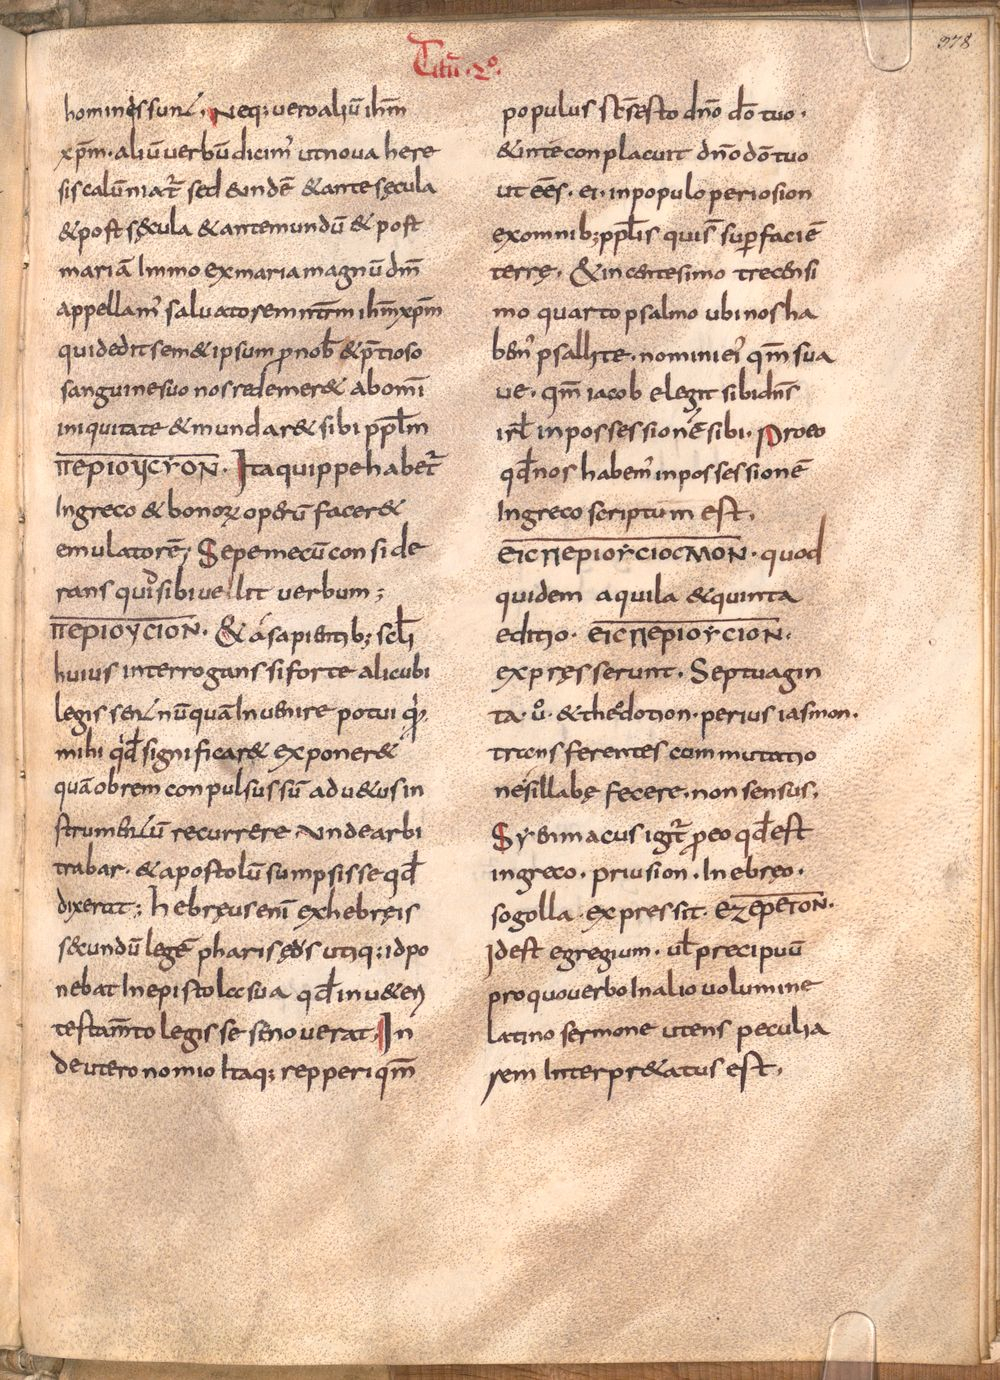 378
Titū · 2º ·
hominęs sunt. Neq; vero aliū ihm̄
xp̄m · aliū verbū dicim' ut nova here
sis calūniat̄ sed & indē & ante sęcula
& post sęcula & ante mundū & post
mariā Immo ex maria magnū dm̄
appellam' salvatorem nr̄m ihm̄ xp̄m
qui dedit sem& ipsum p nob̄ & p̄tioso
sanguine suo nos redemer& ab om̄i
iniquitate & mundar& sibi ppl̄m
περιογcyον · Ita quippe habet̄
In greco & bonoꝝ operū facer&
emulatorē; Sepe mecū conside
rans quis sibi vellit verbum;
περιογcιον · & á sapientib; scl̄i
huius interrogans si forte alicubi
legis sent nūquā Invenire potui q̇
mihi qd̄ significar& exponer&
quāobrem conpulsus sū ad v&us in
strumentū recurrere unde arbi
trabar · & apostolū sumpsisse qd̄
dixerat; hebręus eni exhebręis
secundū legē pharisęus utiq; id po
nebat In epistola sua qd̄ in v&eri
testam̄to legisse se noverat. In
deuteronomio Itaq; repperi qm̄
populus sc̄s esto dn̄o dō tuo ·
& in te conplacuit dn̄o dō tuo
ut ēēs · ei · in populo periosion
ex omnib; ppl̄is qui s̄ sup faciē
terrę · & in centesimo trecensi
mo quarto psalmo ubi nos ha
bem' psallite · nomini ei' qm̄ sua
ve · qm̄ iacob elegit sibi dn̄s
irl̄ in possessionē sibi · Pro eo
qd̄ nos habem' in possessionē
In greco scriptum est.
ειcπεριογcιοcmον · quod
quidem aquila & quinta
editio · ειcπεριογcιον ·
expręsserunt · Septuagin
ta · ů · & theodotion · periusiasmon ·
transferentes commutatio
nē sillabę fecere · non sensus.
Symmacus igt̄ p eo qd̄ est
in greco · priusion · In ebręo ·
sogolla · expressit · εzερετον ·
Id est egregium · vl̄ precipuū
pro quo verbo In alio volumine
latino sermone utens peculia
rem Interpr&atus est.